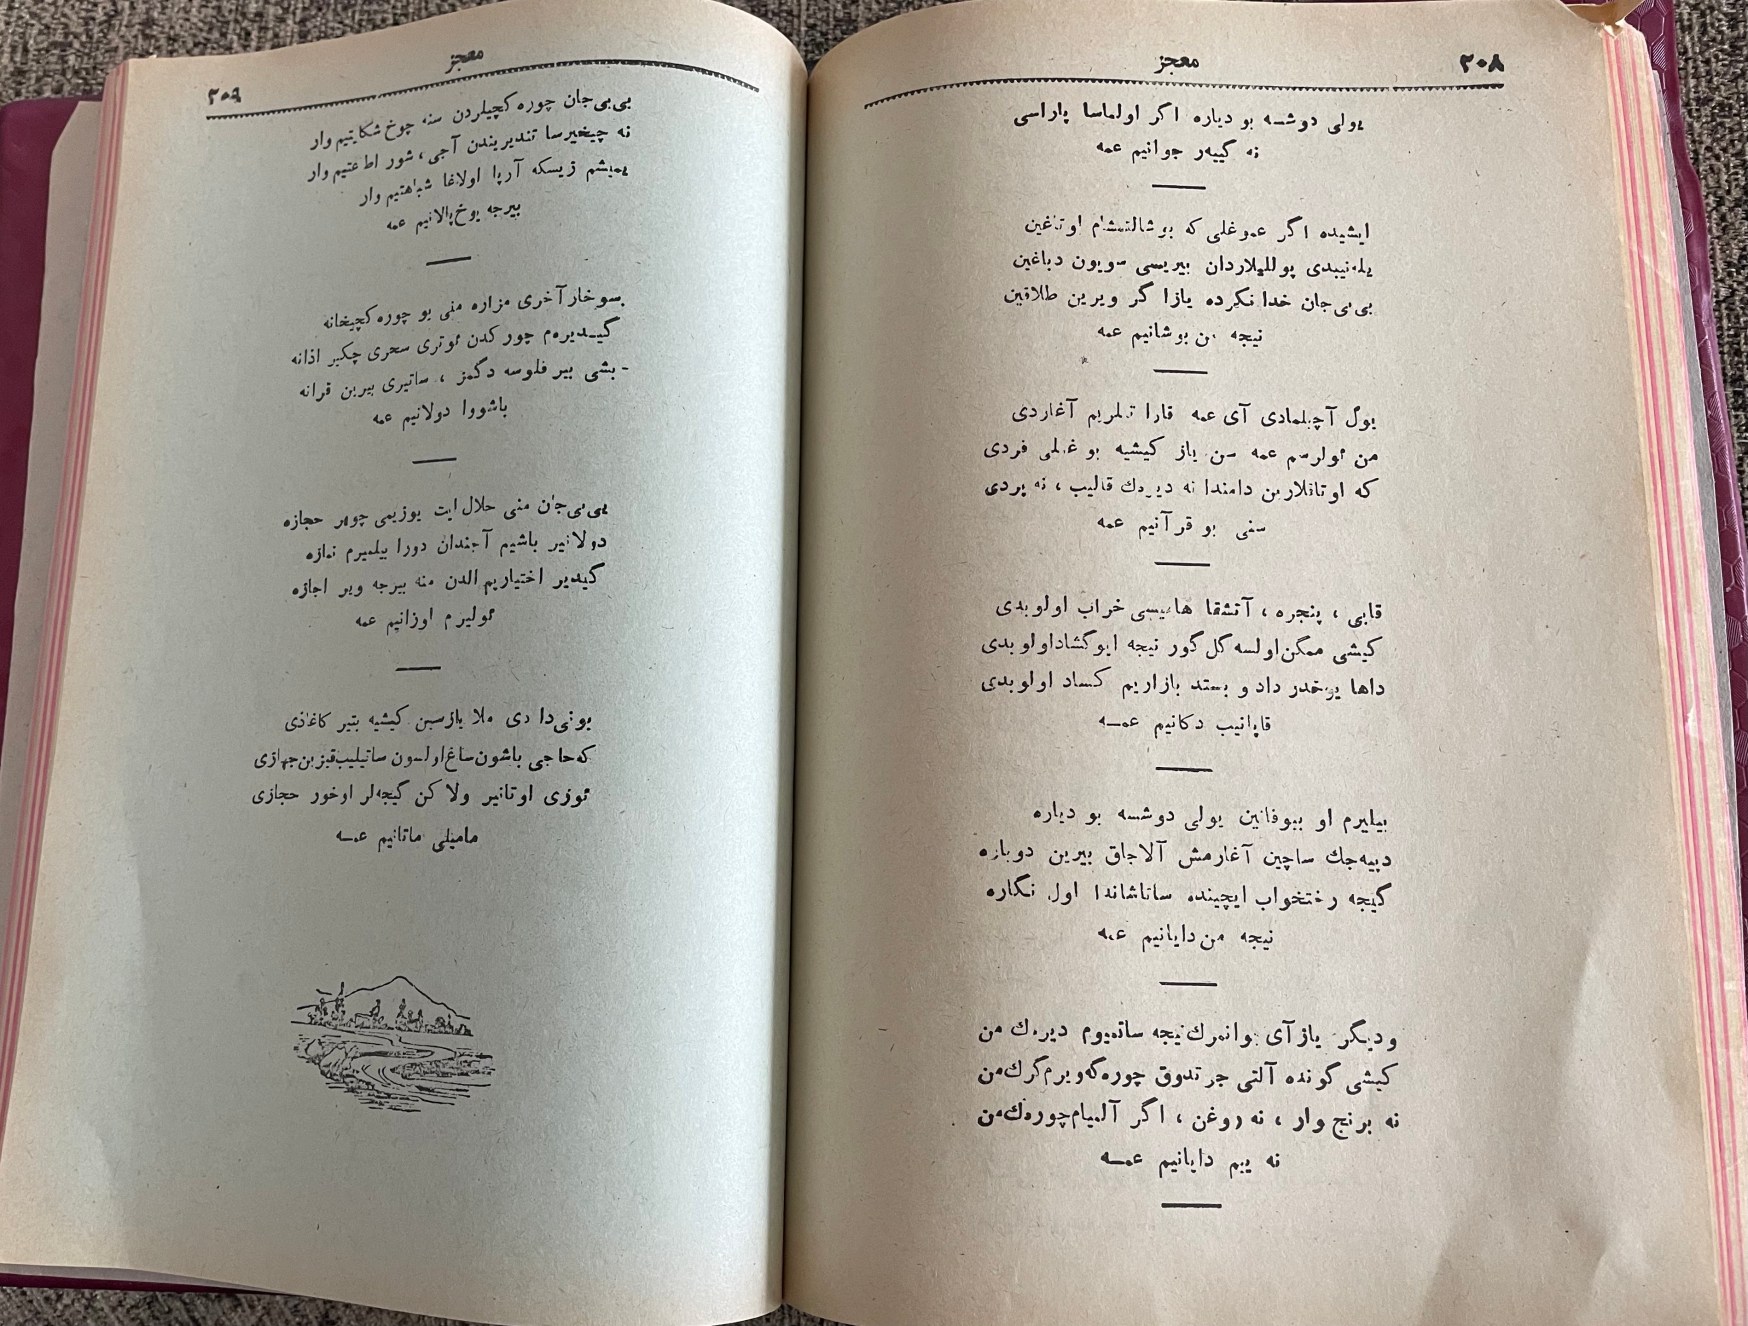 ۲۰۸
معجز
یولی دوشسه بو دیاره اگر اولماسا پاراسی
نه گییهر جوانیم عمه
ایشیده اگر عموغلی که بوشالتمشام اوتاغین
یله‌نیبدی پوللیلاردان بیریسی سویون دباغین
بی‌بی‌جان خدا نکرده یازا گر ویرین طلاقین
نیجه من بوشانیم عمه
یول آچیلمادی آی عمه قارا تللریم آغاردی
من ئولرسم عمه سن یاز کیشیه بو غملی فردی
که اوتاقلارین دامندا نه دیرک قالیب ، نه پردی
سنی بو قرآنیم عمه
قاپی ، پنجره ، آتشقا هامیسی خراب اولوبدی
کیشی ممگن‌اولسه گل گور نیجه ایوگشاداولوبدی
داها یوخدر داد و بستد بازاریم کساد اولوبدی
قاپانیب دکانیم عمــه
بیلیرم او بیوفانین یولی دوشسه بو دیاره
دییه‌جك ساچین آغارمش آلاجاق بیرین دوباره
گیجه رختخواب ایچینده ساتاشاندا اول نگاره
نیجه من دایانیم عمه
ودیگر یاز آی جوانمرك نیجه ساتمیوم دیرك من
کیشی گونده آلتی جرتدوق چوره‌گه ویرم گرك من
نه برنج وار ، نه روغن ، اگر آلمیام چوره‌ك من
نه ییم دایانیم عمــه
۲۰۹
معجز
بی‌بی‌جان چوره‌کچیلردن سنه چوخ شکایتیم وار
نه چیخیرسا تندیریندن آجی ، شور اطاعتیم وار
یمیشم زبسکه آرپا اولاغا شباهتیم وار
بیرجه یوخ پالانیم عمه
سوخار آخری مزاره منی بو چوره‌کچیخانه
گیــدیره‌م چورکدن ئوتری سحری چکیر اذانه
- بشی بیر فلوسه دگمز ، ساتیری بیرین قرانه
باشووا دولانیم عمه
بی‌بی‌جان منی حلال ایت یوزیمی چویر حجازه
دولانیر باشیم آجندان دورا بیلمیرم نمازه
گیدیر اختیاریم الدن منه بیرجه ویر اجازه
ئولیرم اوزانیم عمه
یونی‌دا دی ملا یازسین کیشیه بتیر کاغاذی
که حاجی باشون‌ساغ‌اولسون ساتیلیب‌قیزین‌جهازی
ئوزی اوتانیر ولاکن گیجه‌لر اوخور حجازی
مامیلی ماتانیم عمــه